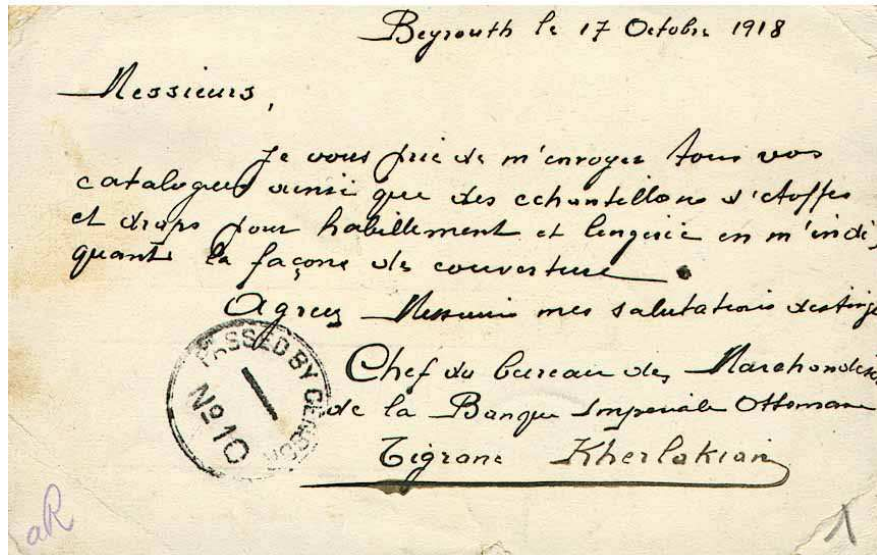 Beyrouth le 17 Octobre 1918
Messieurs,
Je vous prie de m'envoyer tous vos
catalogues ainsi que des echantillons d'etoffes
et draps pour habillement et lingerie en m'indi,
quant la façone de couverture.
Agreez Messieurs mes salutations
Chef du bureau des Marchandises
de la Banque Imperiale Ottomane
Tigrane Kherlakian
PASSED BY CENSOR
Nº 10
aR
1